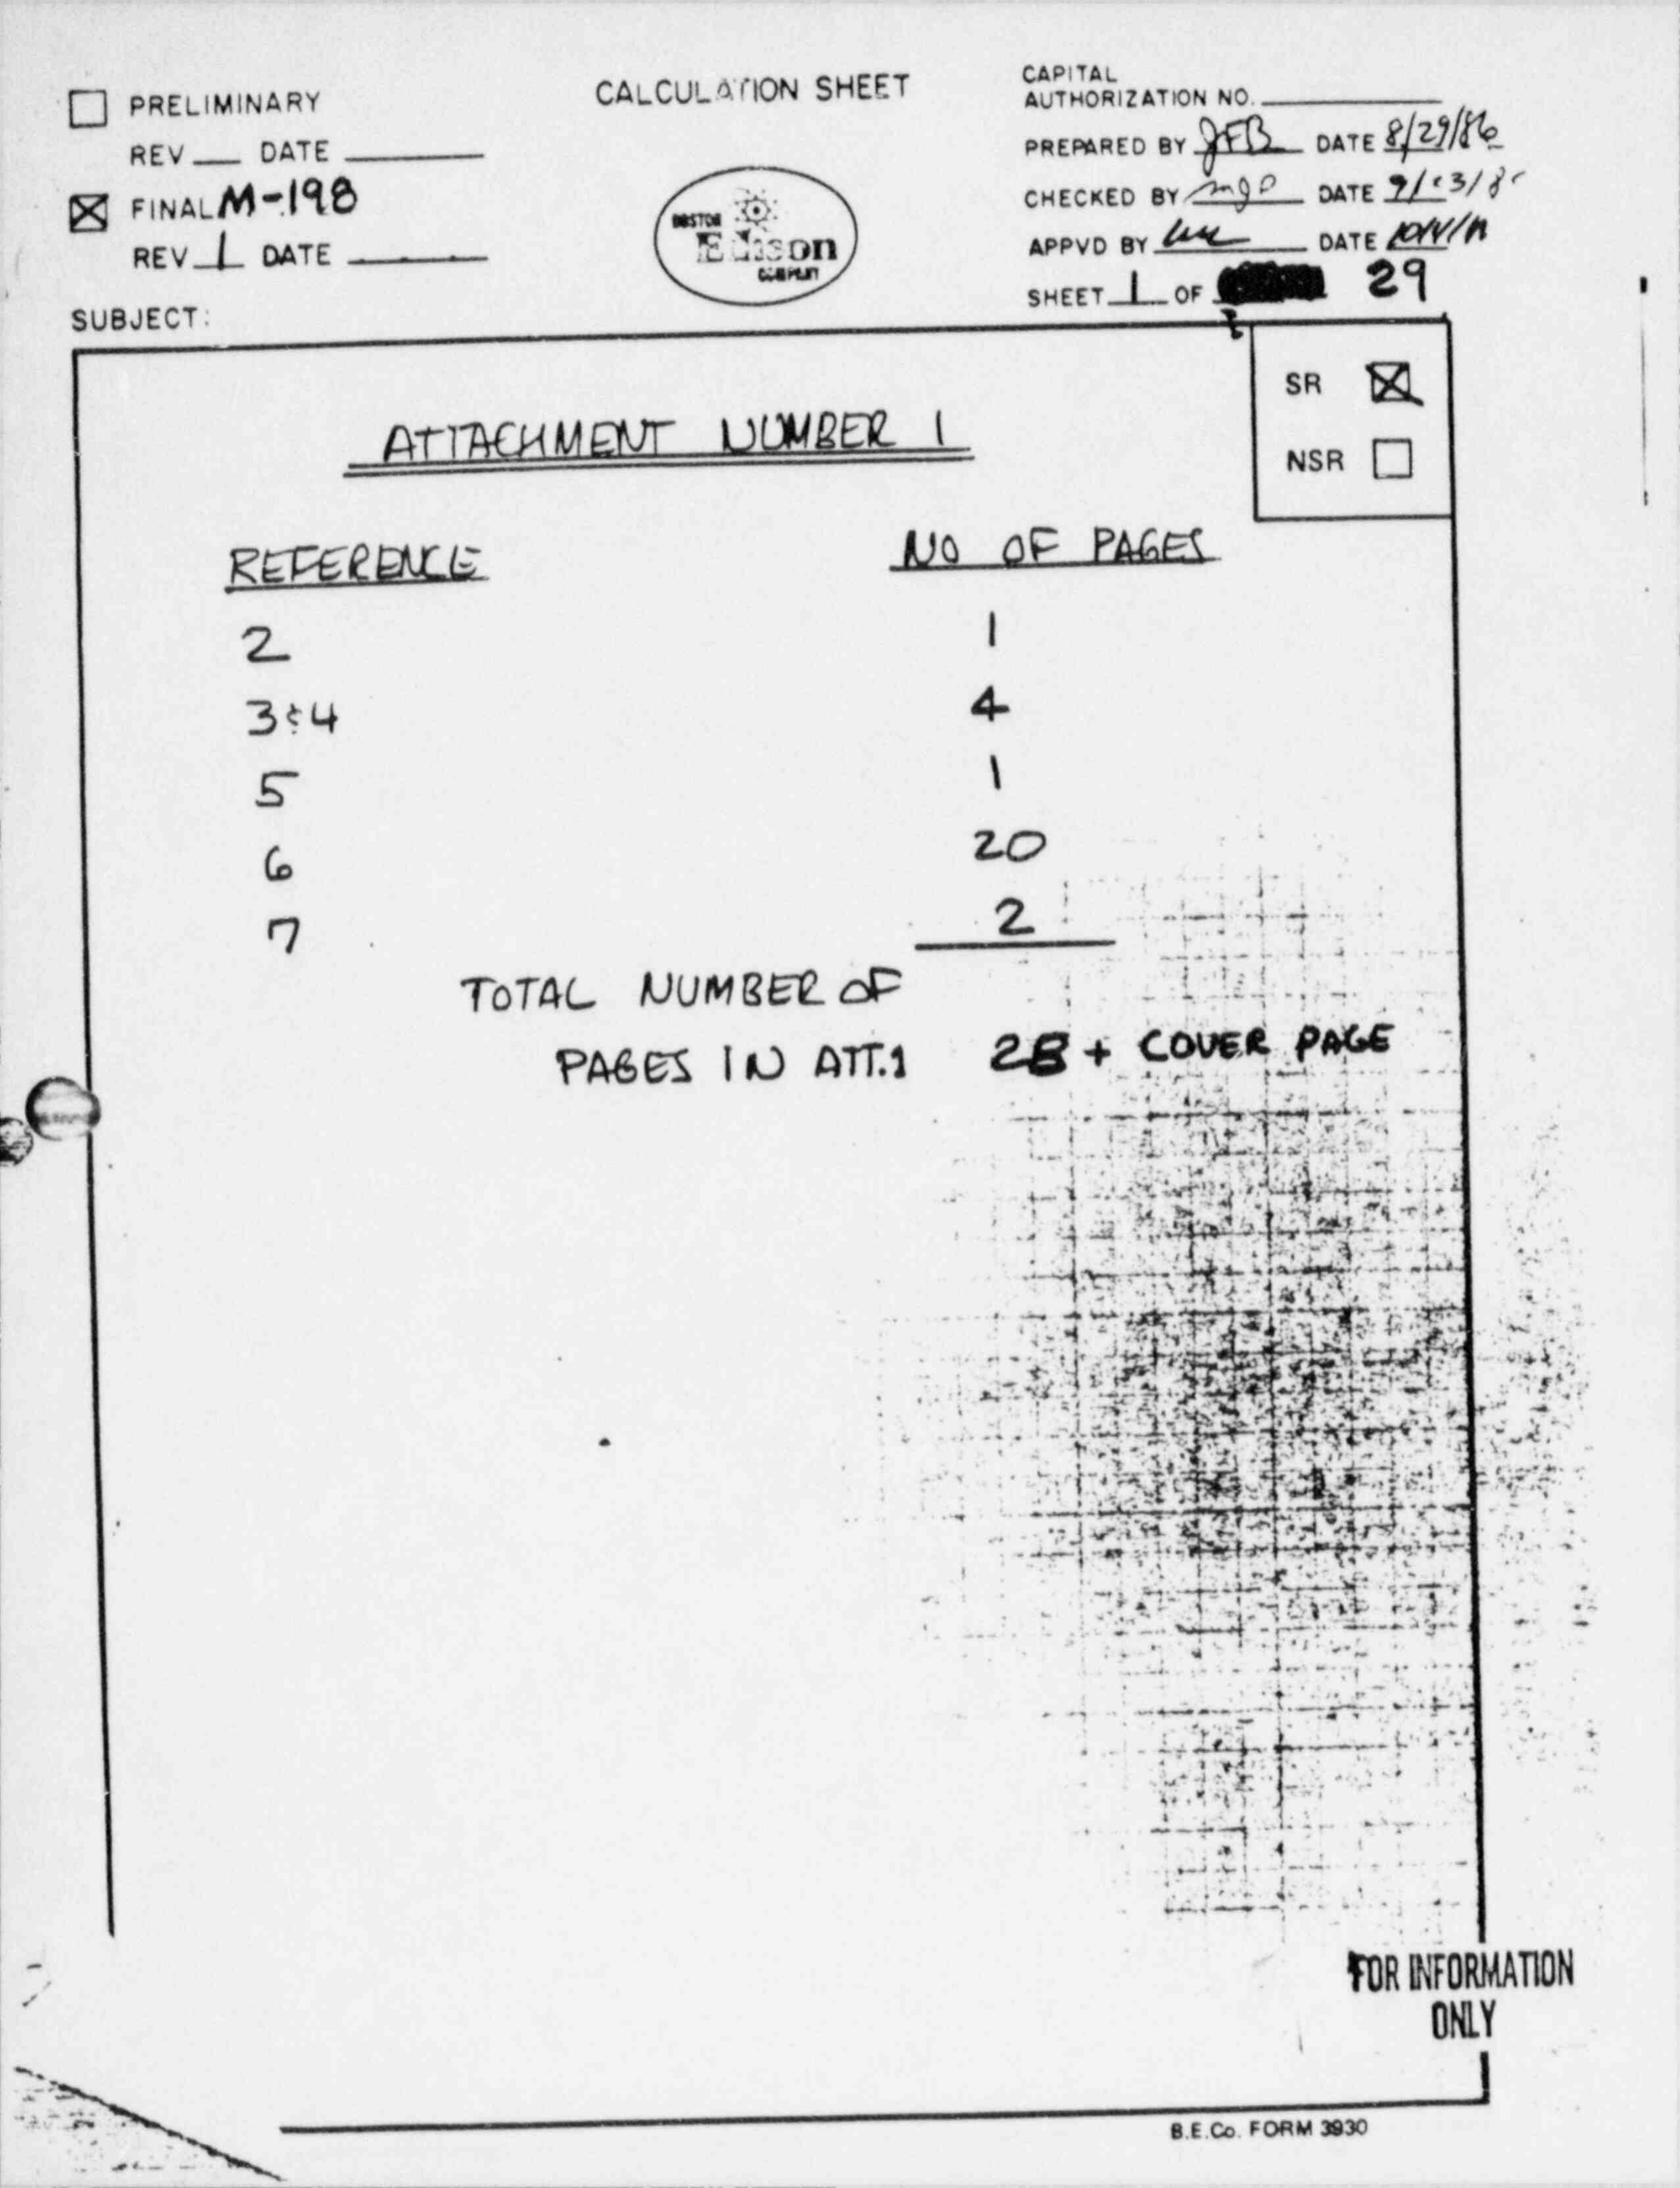 CALCULATION SHEET
PRELIMINARY
REV DATE
FINAL M-198
REV 1 DATE
BOSTON
Edison
COMPANY
CAPITAL
AUTHORIZATION NO.
PREPARED BY JFB DATE 8/29/86
CHECKED BY DATE
APPVD BY DATE
SHEET 1 OF 29
SUBJECT:
SR
NSR
ATTACHMENT NUMBER 1
REFERENCE NO OF PAGES
2 1
3 & 4 4
5 1
6 20
7 2
TOTAL NUMBER OF
PAGES IN ATT.1 28 + COVER PAGE
FOR INFORMATION
ONLY
B.E.Co. FORM 3930